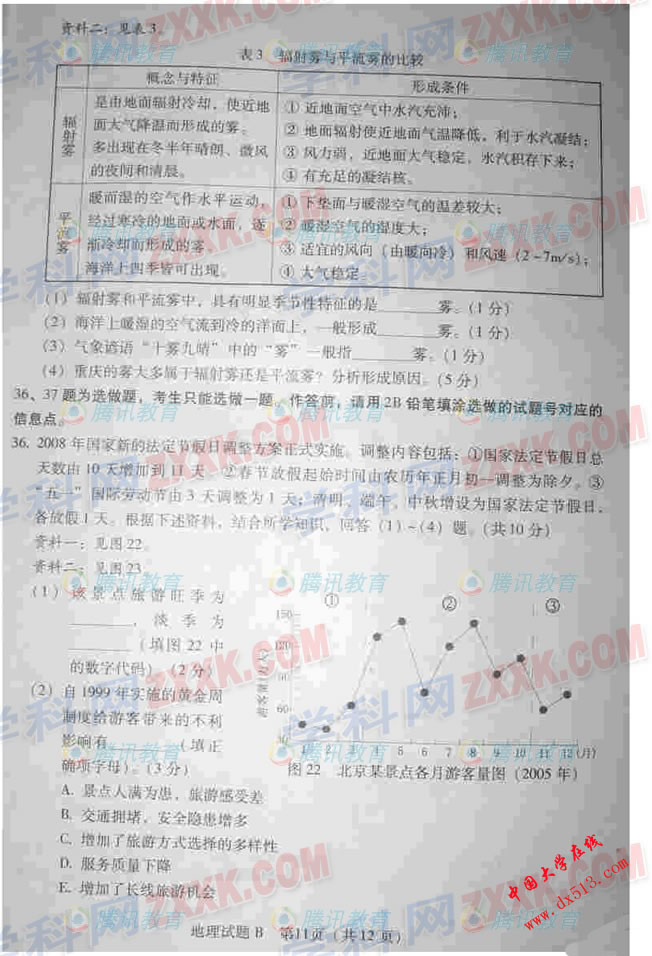 资料二：见表3。
表3 辐射雾与平流雾的比较
概念与特征 形成条件
辐射雾
是由地面辐射冷却，使近地
面大气降温而形成的雾。
多出现在冬半年晴朗、微风
的夜间和清晨。
① 近地面空气中水汽充沛；
② 地面辐射使近地面气温降低，利于水汽凝结；
③ 风力弱，近地面大气稳定，水汽积存下来；
④ 有充足的凝结核。
平流雾
暖而湿的空气作水平运动，
经过寒冷的地面或水面，逐
渐冷却而形成的雾。
海洋上四季皆可出现。
① 下垫面与暖湿空气的温差较大；
② 暖湿空气的湿度大；
③ 适宜的风向（由暖向冷）和风速（2~7m/s）；
④ 大气稳定。
（1）辐射雾和平流雾中，具有明显季节性特征的是________雾。（1分）
（2）海洋上暖湿的空气流到冷的洋面上，一般形成________雾。（1分）
（3）气象谚语“十雾九晴”中的“雾”一般指________雾。（1分）
（4）重庆的雾大多属于辐射雾还是平流雾？分析形成原因。（5分）
36、37题为选做题，考生只能选做一题。作答前，请用2B铅笔填涂选做的试题号对应的
信息点。
36. 2008年国家新的法定节假日调整方案正式实施。调整内容包括：①国家法定节假日总
天数由10天增加到11天。②春节放假起始时间由农历年正月初一调整为除夕。③
“五一”国际劳动节由3天调整为1天；清明、端午、中秋增设为国家法定节假日，
各放假1天。根据下述资料，结合所学知识，回答（1）~（4）题。（共10分）
资料一：见图22。
资料二：见图23
（1）该景点旅游旺季为
________，淡季为
________（填图22中
的数字代码）（2分）
（2）自1999年实施的黄金周
制度给游客带来的不利
影响有________（填正
确项字母）。（3分）
A. 景点人满为患，旅游感受差
B. 交通拥堵，安全隐患增多
C. 增加了旅游方式选择的多样性
D. 服务质量下降
E. 增加了长线旅游机会
① ② ③
游客量(万人)
150
120
90
60
1 2 3 4 5 6 7 8 9 10 11 12 (月)
图22 北京某景点各月游客量图（2005年）
地理试题B 第11页（共12页）
中国大学在线
www.dx513.com
学科网 ZXXK.COM
腾讯教育